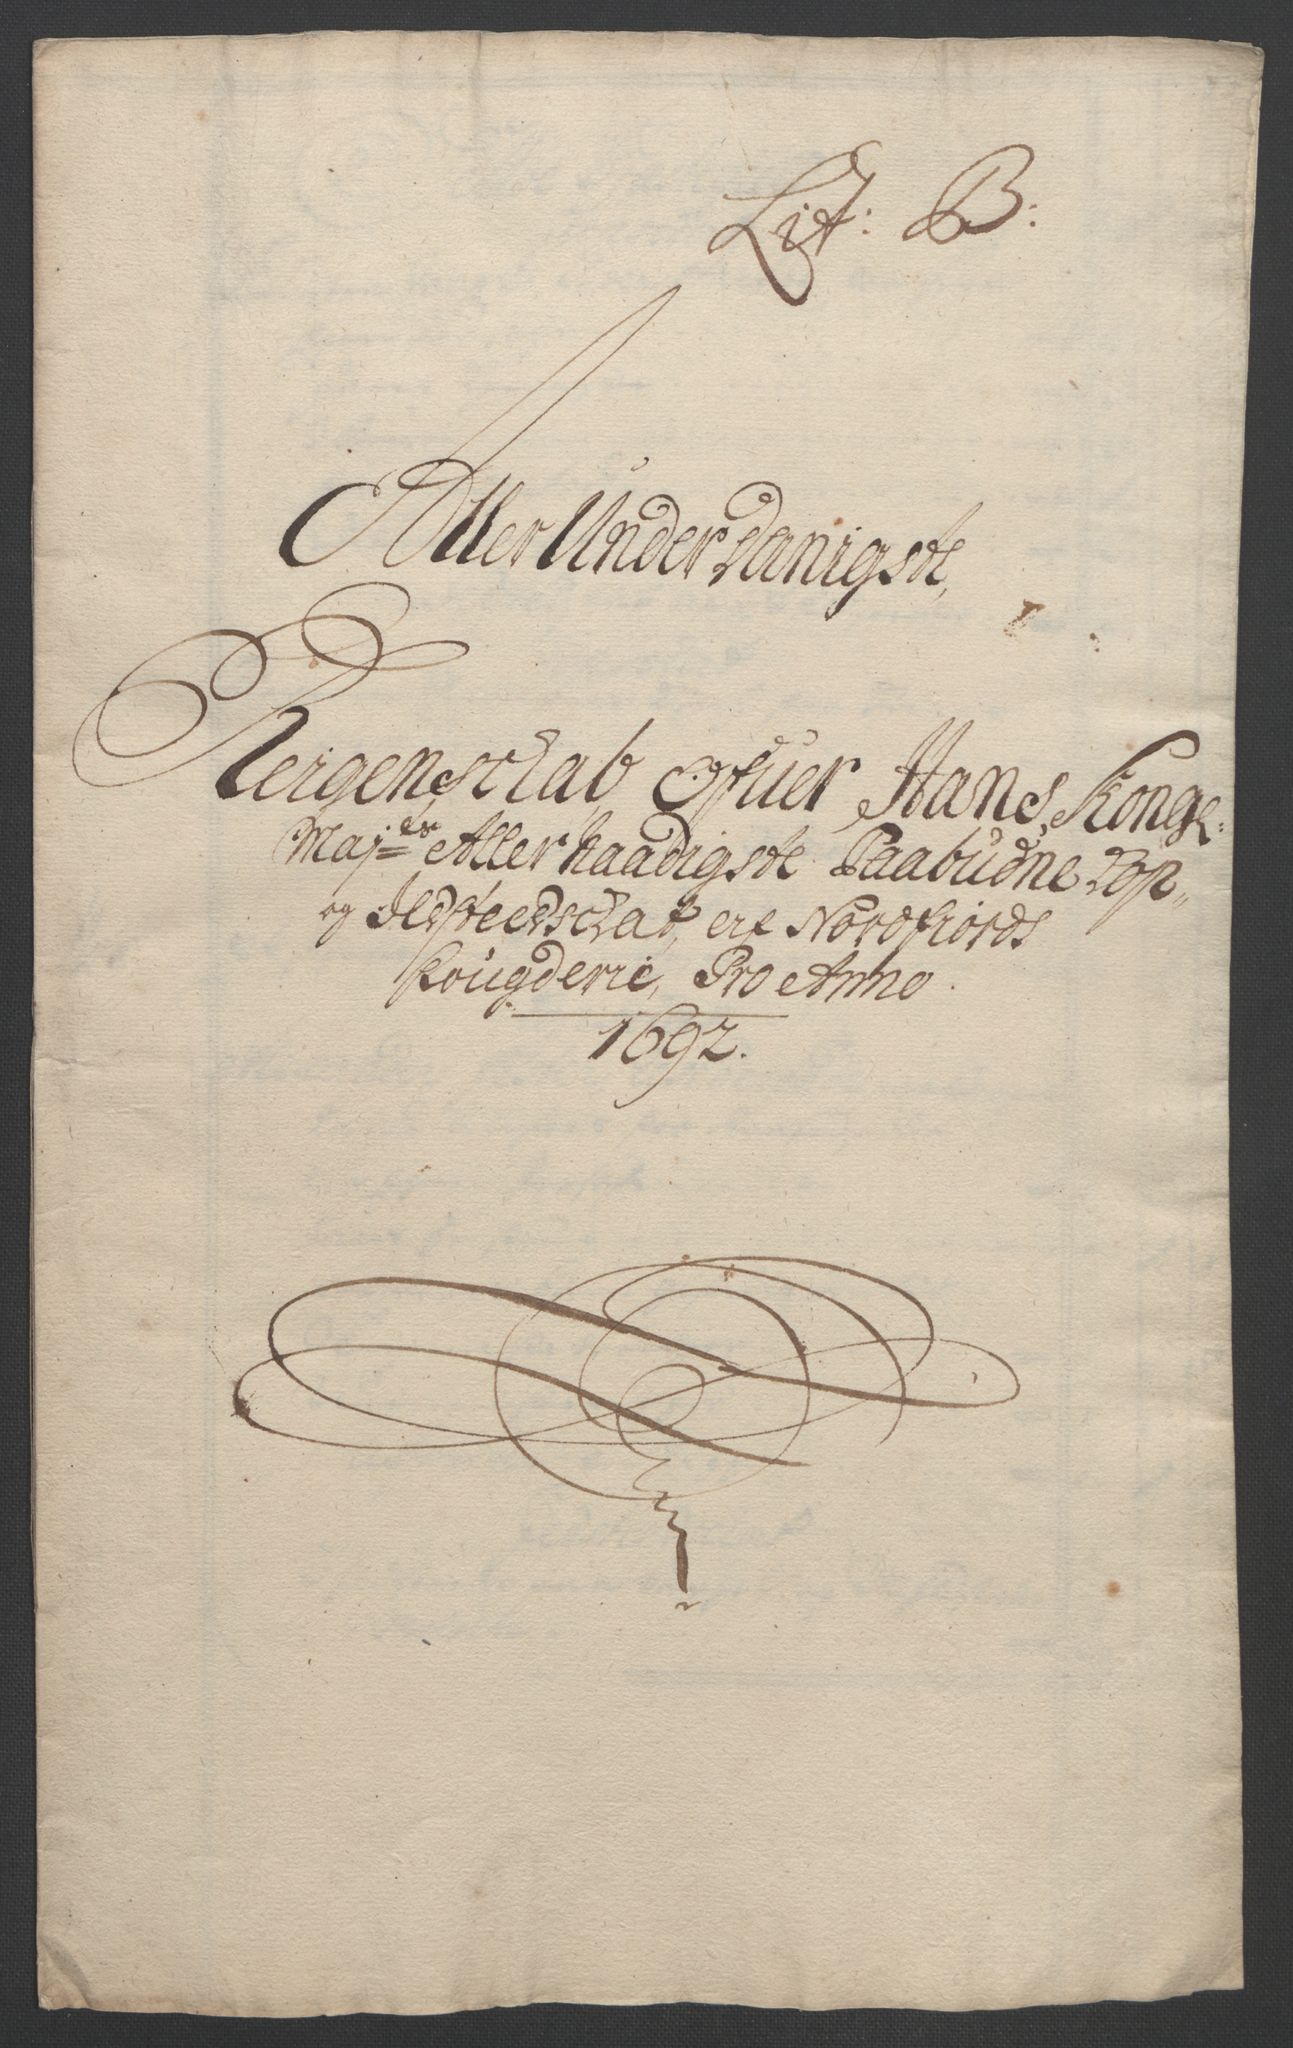 Lit: B:
Aller Underdanigste,
Reigenschab ofuer Hans Kongl:
Maj:ts Aller Naadigste Paabudne Kop-
og Ildsteedschat, af Nordfiords
fougderie, Pro Anno
1692.